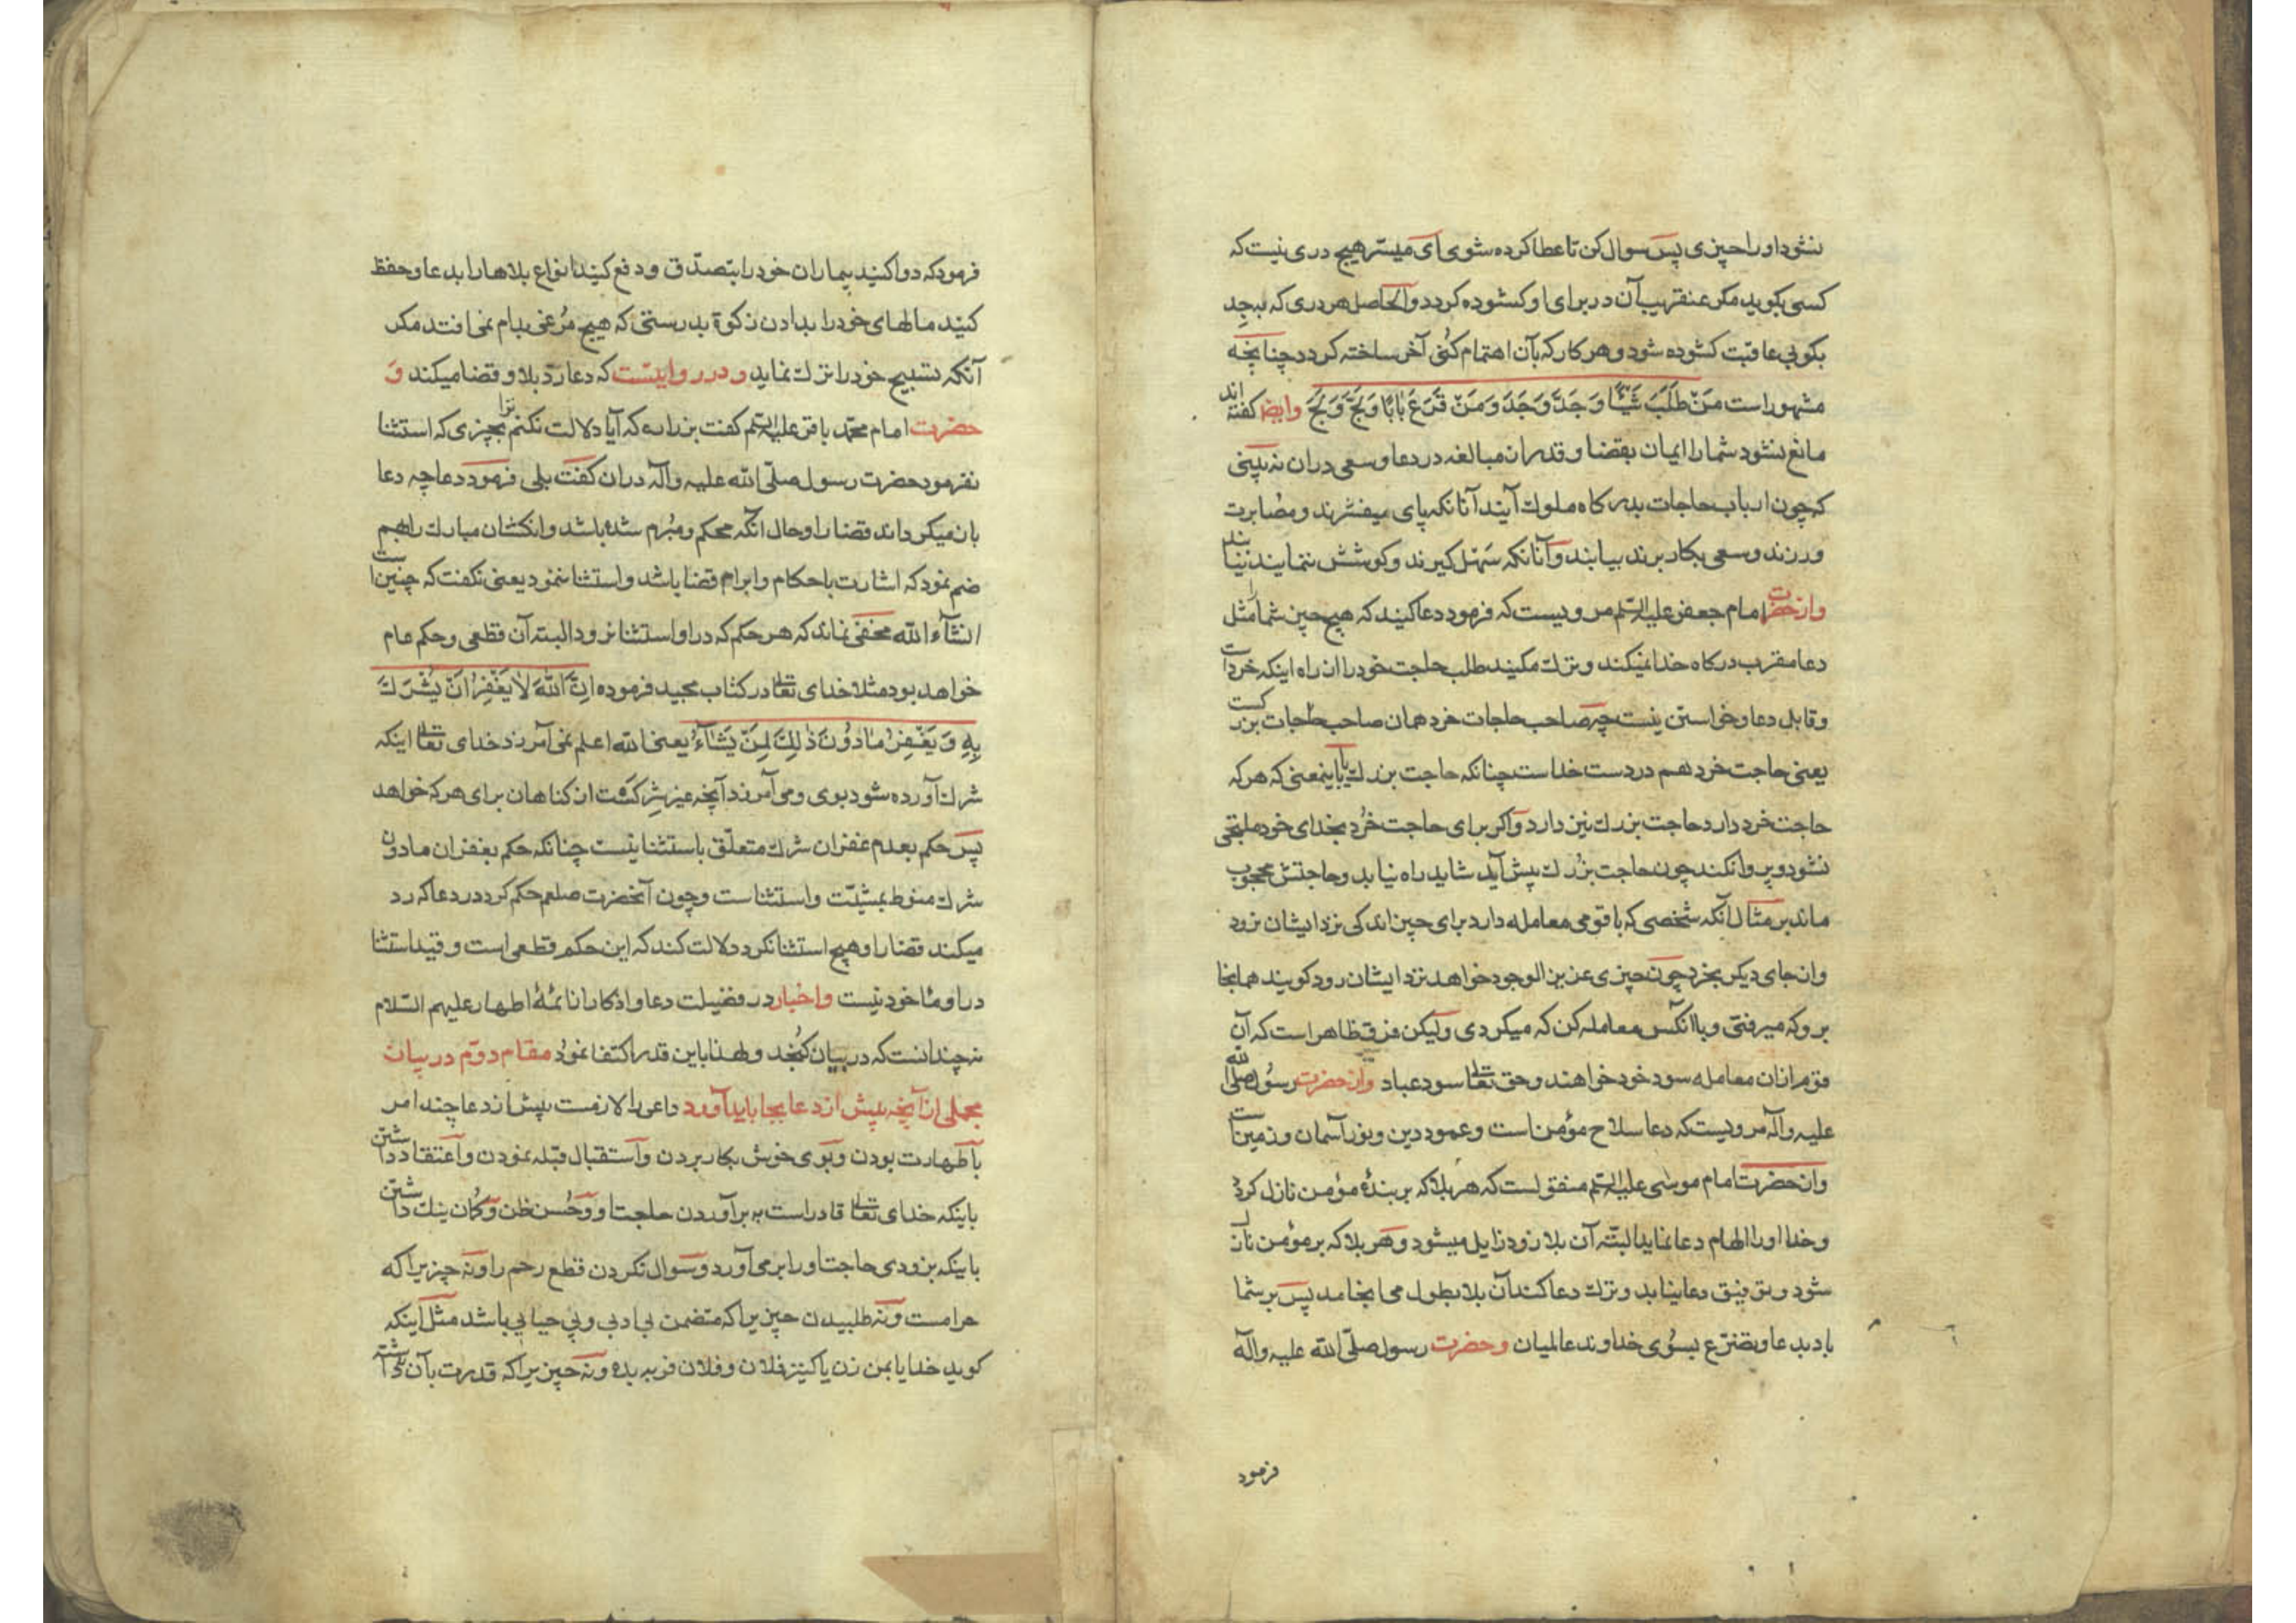 نشود او را چیزی پس سوال کن تا عطا کرده شوی ای میسر هیچ دری نیست که
کسی بکوبد مکر عنقریب آن در برای او کشوده کردد والحاصل هر دری که بجد
بکوبی عاقبت کشوده شود و هر کار که بآن اهتمام کنی آخر ساخته کردد چنانچه
مشهور است مَنْ طَلَبَ شَيْئًا وَجَدَّ وَجَدَ وَمَنْ قَرَعَ بَابًا وَلَجَّ وَلَجَ وایضا کفته اند
مانع نشود شما را ایمان بقضا و قدر از مبالغه در دعا و سعی در ان نه بینی
که چون ارباب حاجات بدرکاه ملوک آیند آنانکه پای میفشرند و مصابرت
ورزند و سعی بکار برند بیابند و آنانکه سهل کیرند و کوشش ننمایند نیابند
و از حضرت امام جعفر علیه السلم مرویست که فرمود دعا کنید که هیچ چیز شما را مثل
دعا مقرب درکاه خدا نمیکند و ترک مکنید طلب حاجت خود را از راه اینکه خرد است
و قابل دعا و خواستن نیست چه صاحب حاجات خرد همان صاحب حاجات بزرکست
یعنی حاجت خرد هم در دست خداست چنانکه حاجت بزرک یا باینمعنی که هر که
حاجت خرد دارد حاجت بزرک نیز دارد و اکر برای حاجت خرد بخدای خود ملتجی
نشود و پروا نکند چون حاجت بزرک پیش آید شاید راه نیابد و حاجتش محجوب
ماند بر مثال آنکه شخصی که با قومی معامله دارد برای چیز اندکی نزد ایشان نرود
و از جای دیکر بخرد چون چیزی عزیز الوجود خواهد نزد ایشان رود کویند همانجا
برو که میرفتی و با آنکس معامله کن که میکردی ولیکن فرق ظاهر است که آن
قوم از ان معامله سود خود خواهند و حق تعالی سود عباد و از حضرت رسول صلی الله
علیه وآله مرویست که دعا سلاح مؤمن است و عمود دین و نور آسمان و زمین است
و از حضرت امام موسی علیه السلم منقول است که هر بلا که بر بندۀ مؤمن نازل کردد
و خدا او را الهام دعا نماید البته آن بلا زود زایل میشود و هر بلا که بر مؤمن نازل
شود و توفیق دعا نیابد و ترک دعا کند آن بلا بطول می انجامد پس بر شما
باد بدعا و تضرع بسوی خداوند عالمیان و حضرت رسول صلی الله علیه وآله
فرمود
فرمود که دوا کنید بیماران خود را بتصدق و دفع کنید انواع بلاها را بدعا و حفظ
کنید مالهای خود را بدادن زکوة بدرستی که هیچ مرغی بدام نمی افتد مکر
آنکه تسبیح خود را ترک نماید و در روایتست که دعا رد بلا و قضا میکند و
حضرت امام محمد باقر علیه السلم کفت بزراره که آیا دلالت نکنم ترا بچیزی که استثنا
نفرمود حضرت رسول صلی الله علیه وآله در ان کفت بلی فرمود دعا چه دعا
باز میکرداند قضا را و حال آنکه محکم و مبرم شده باشد و انکشتان مبارک را بهم
ضم نمود که اشارت باحکام و ابرام قضا باشد و استثنا ننمود یعنی نکفت که چنین است
انشآء الله مخفی نماند که هر حکم که در او استثنا نرود البته آن قطعی و حکم عام
خواهد بود مثلا خدای تعالی در کتاب مجید فرموده اِنَّ اللّٰهَ لَا يَغْفِرُ اَنْ يُشْرَكَ
بِهِ وَ يَغْفِرُ مَا دُونَ ذٰلِكَ لِمَنْ يَشَآءُ یعنی الله اعلم نمی آمرزد خدای تعالی اینکه
شرک آورده شود بوی و می آمرزد آنچه غیر شرکست از کناهان برای هر که خواهد
پس حکم بعدم غفران شرک متعلق باستثنا نیست چنانکه حکم بغفران مادون
شرک منوط بمشیت و استثناست و چون آنحضرت صلعم حکم کرد در دعا که رد
میکند قضا را و هیچ استثنا نکرد دلالت کند که این حکم قطعی است و قید استثنا
در او مأخوذ نیست و اخبار در فضیلت دعا و اذکار از ائمۀ اطهار علیهم السلام
نه چندانست که در بیان کنجد و لهذا باین قدر اکتفا نمود مقام دوم در بیان
مجملی از آنچه پیش از دعا بجا باید آورد داعی را لازمست پیش از دعا چند امر
با طهارت بودن و بوی خوش بکار بردن و استقبال قبله نمودن و اعتقاد داشتن
باینکه خدای تعالی قادر است بر برآوردن حاجت او و حسن ظن و کمان نیک داشتن
باینکه بزودی حاجت او را بر می آورد و سوال نکردن قطع رحم را و نه چیزیرا که
حرامست و نه طلبیدن چیزیرا که متضمن بی ادبی و بی حیایی باشد مثل اینکه
کوید خدایا بمن زن یا کنیز فلان و فلان فربه بده و نه چیزیرا که قدرت بآن